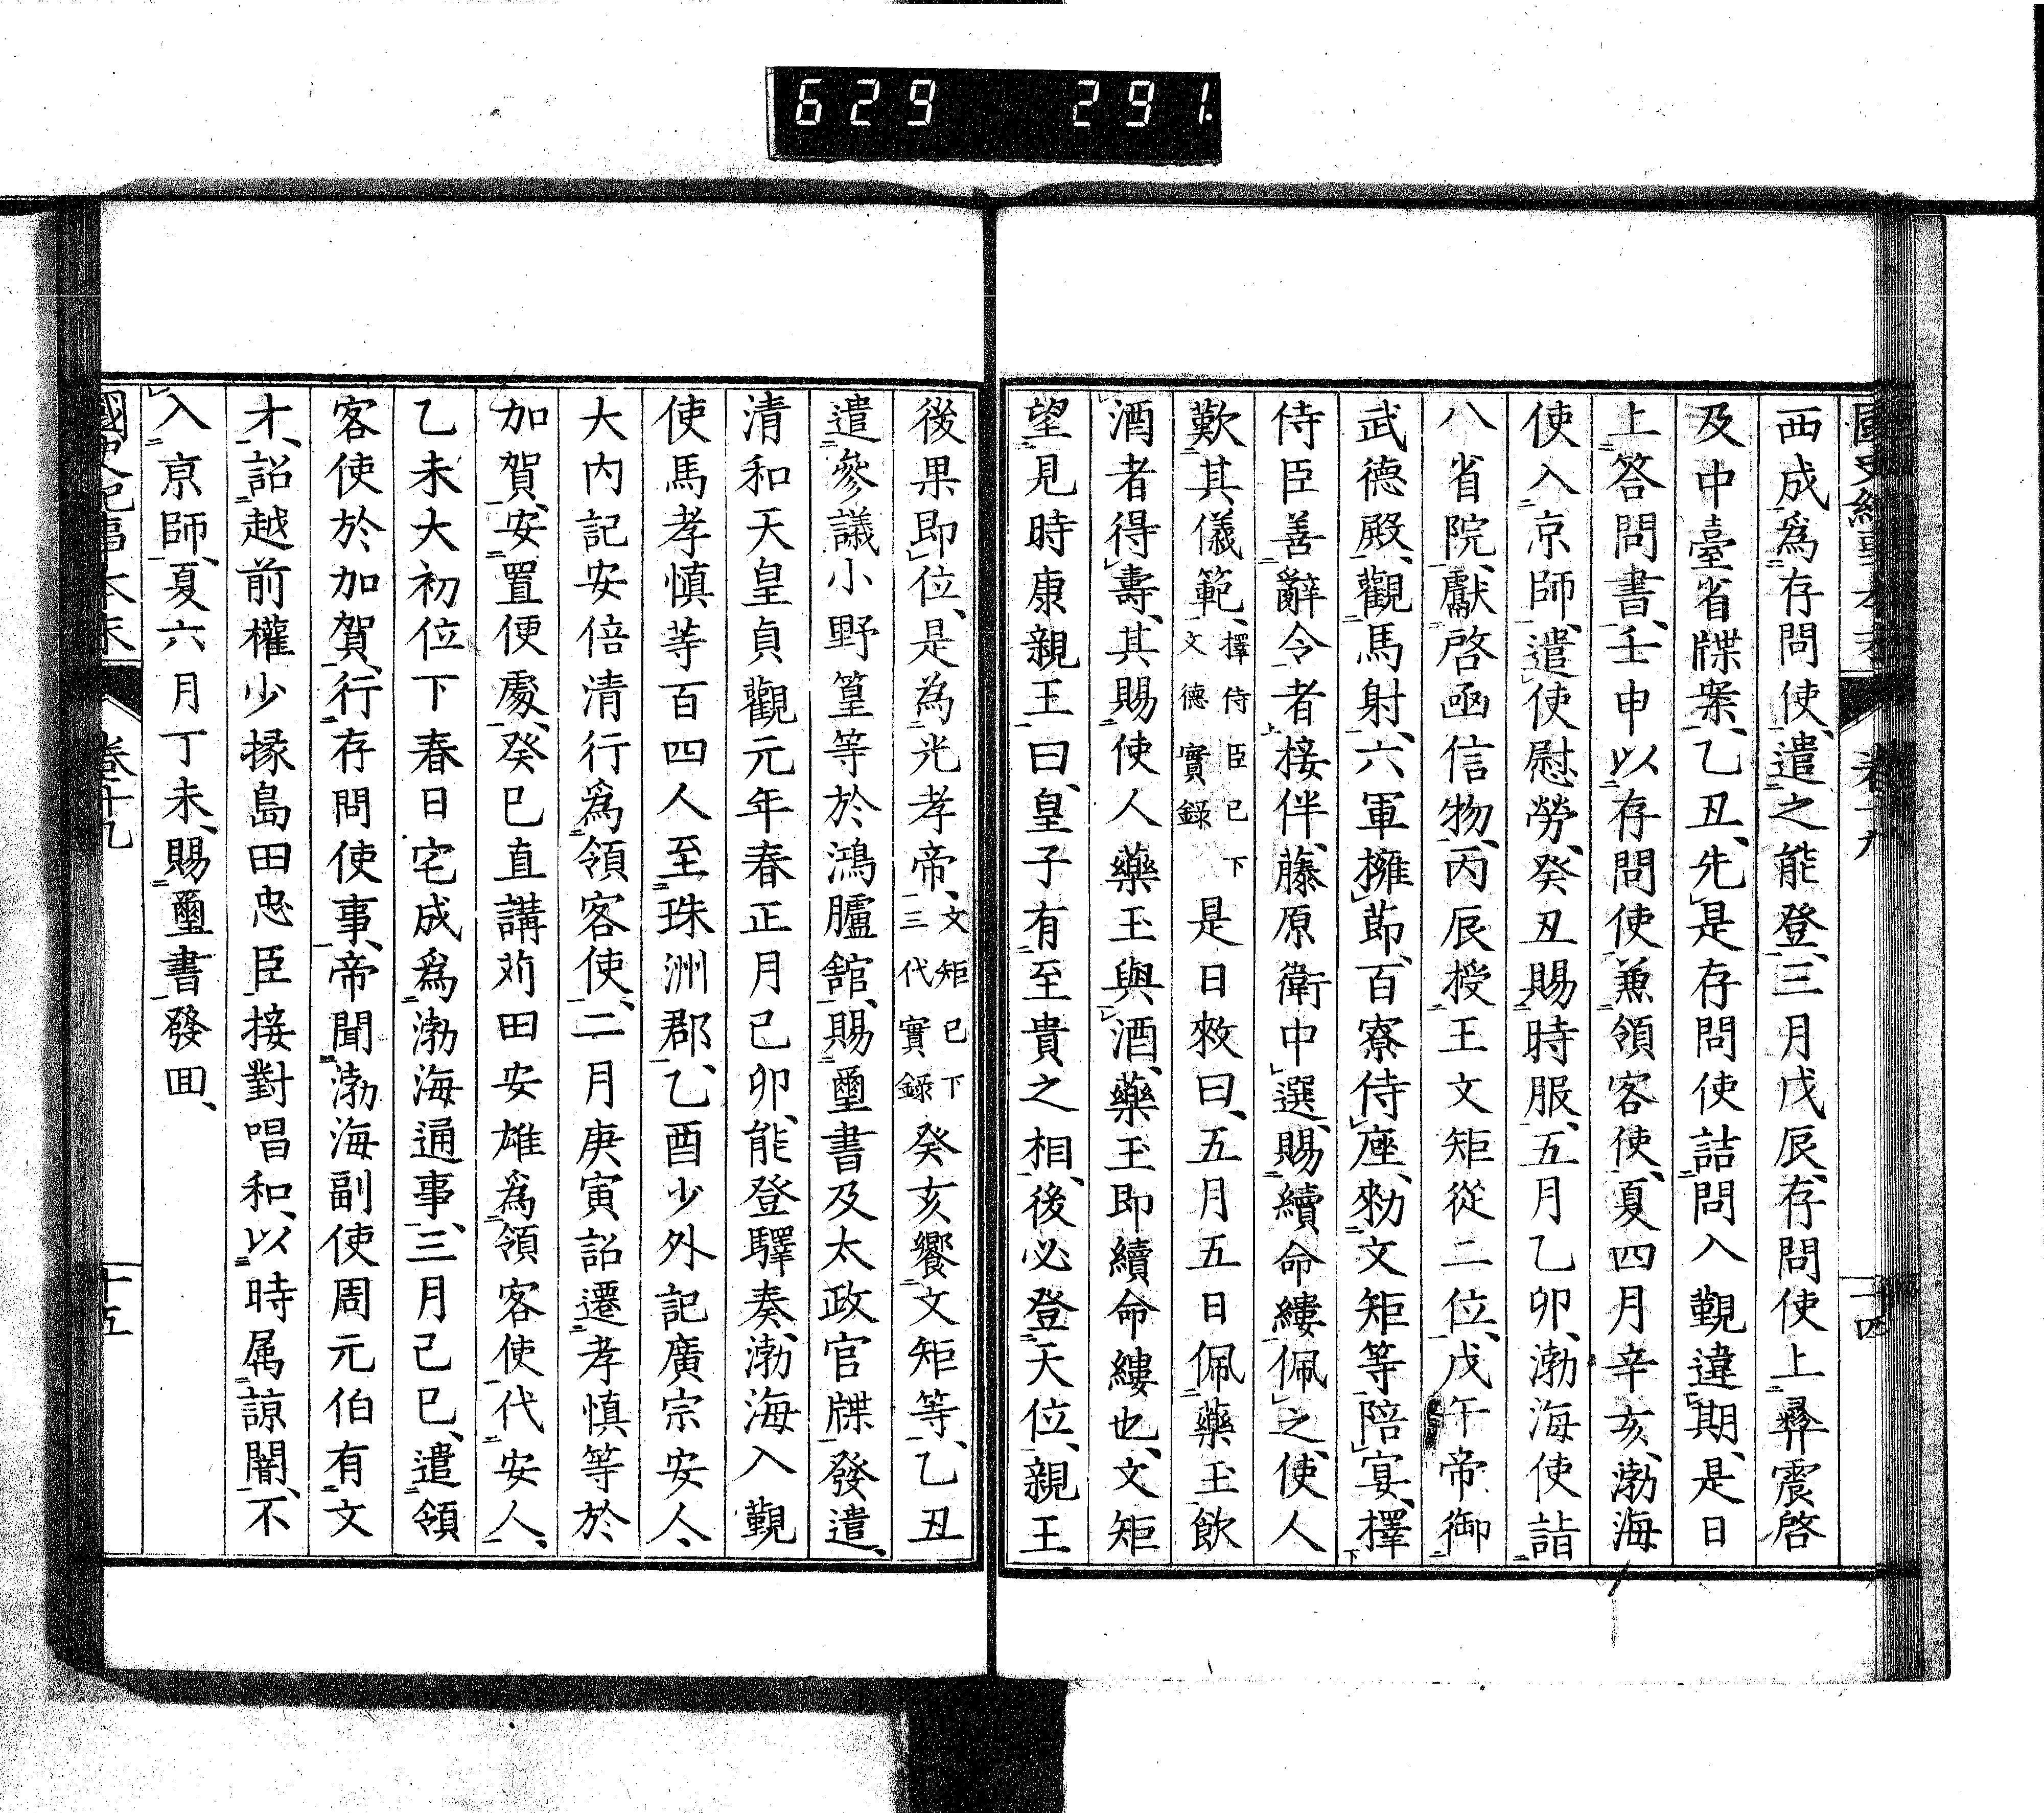 629 291.
國史紀事本末 卷十九 十四
西成爲存問使、遣之能登、三月戊辰、存問使上彝震啓
及中臺省牒案、乙丑、先是存問使詰問入覲違期、是日
上答問書、壬申以存問使兼領客使、夏四月辛亥、渤海
使入京師、遣使慰勞、癸丑賜時服、五月乙卯、渤海使詣
八省院、獻啓函信物、丙辰授王文矩從二位、戊午帝御
武德殿、觀馬射、六軍擁節、百寮侍座、勑文矩等陪宴、擇
侍臣善辭令者接伴、藤原衛中選、賜續命縷佩之、使人
歎其儀範、擇侍臣已下文德實録是日敕曰、五月五日佩藥玉飲
酒者得壽、其賜使人藥玉與酒、藥玉即續命縷也、文矩
望見時康親王曰、皇子有至貴之相、後必登天位、親王
後果即位、是為光孝帝、文矩已下三代實録癸亥饗文矩等、乙丑
遣參議小野篁等於鴻臚舘、賜璽書及太政官牒發遣、
清和天皇貞觀元年春正月己卯、能登驛奏、渤海入覲
使馬孝慎等百四人至珠洲郡、乙酉少外記廣宗安人、
大内記安倍清行爲領客使、二月庚寅詔遷孝慎等於
加賀、安置便處、癸巳直講苅田安雄爲領客使代安人、
乙未大初位下春日宅成爲渤海通事、三月己巳、遣領
客使於加賀、行存問使事、帝聞渤海副使周元伯有文
才、詔越前權少掾島田忠臣接對唱和、以時属諒闇、不
入京師、夏六月丁未、賜璽書發回、
國史紀事本末 卷十九 十五